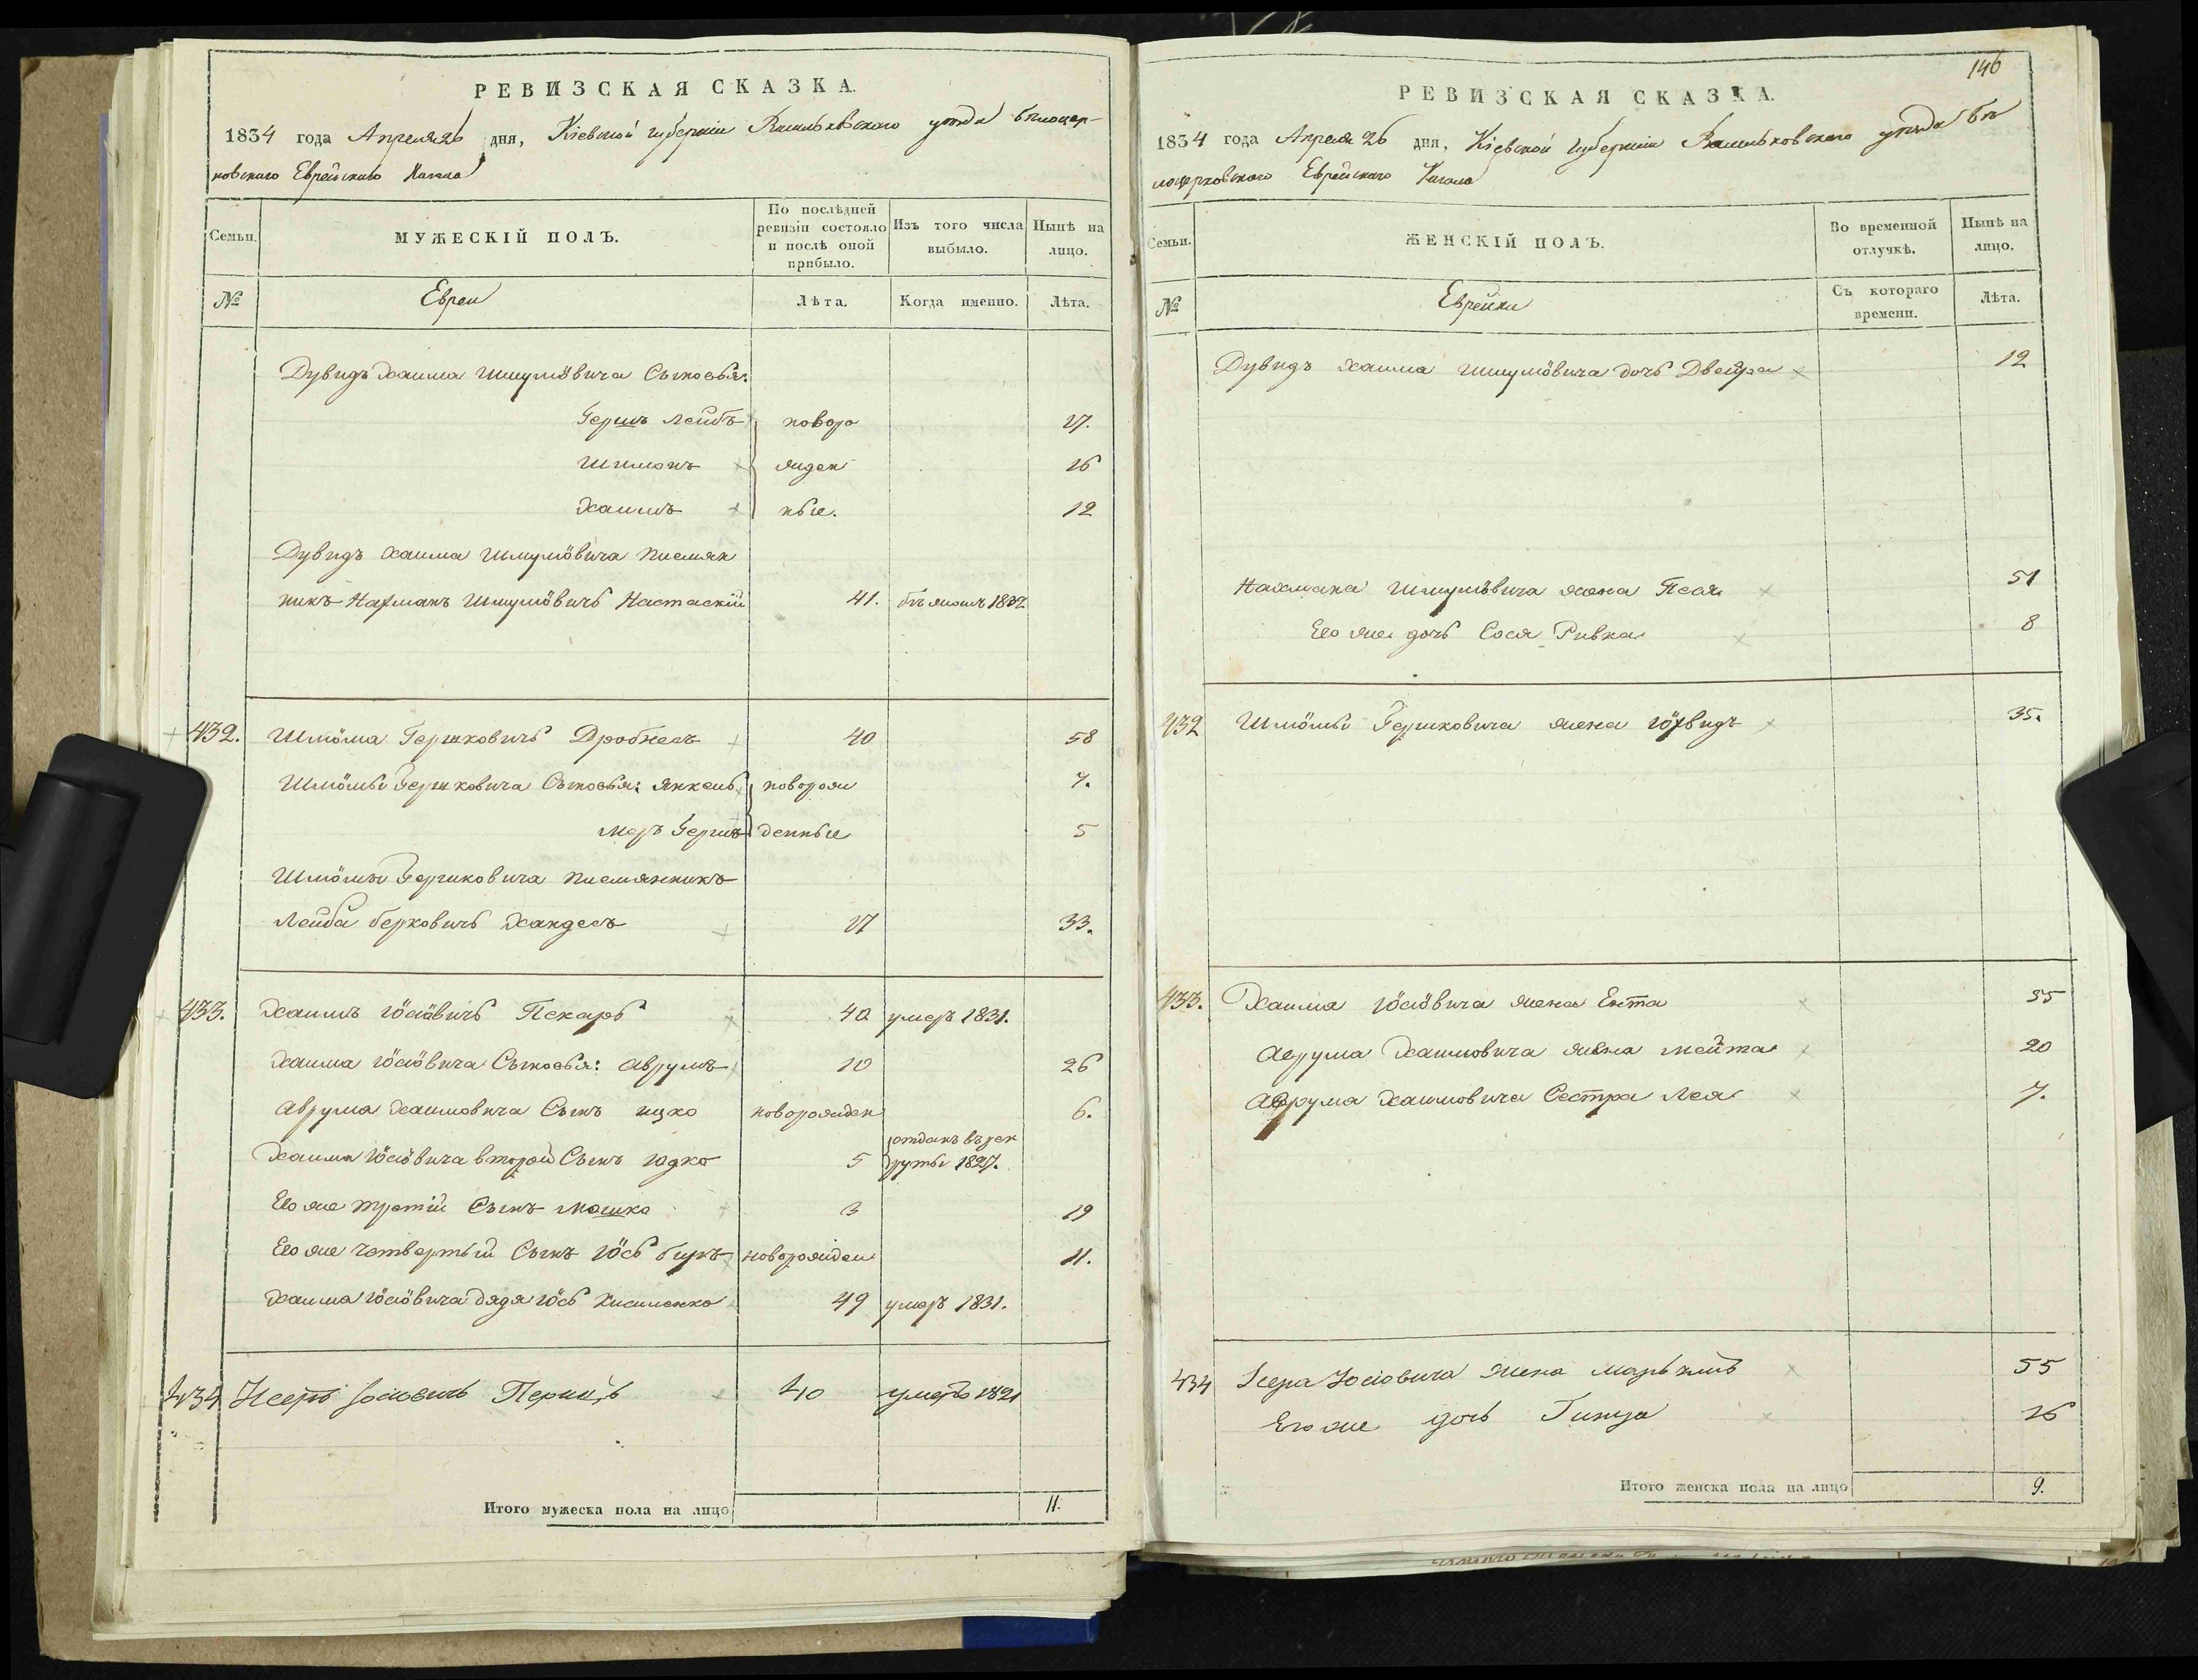 РЕВИЗСКАЯ СКАЗКА.
1834 года Апреля 26 дня, Кіевской губерніи Васильковского уѣзда Бѣлоцер-
ковского Еврейскаго Кагала
Семьи.
МУЖЕСКІЙ ПОЛЪ.
По послѣдней ревизіи состояло и послѣ оной прибыло.
Изъ того числа выбыло.
Нынѣ на лицо.
№
Евреи
Лѣта.
Когда именно.
Лѣта.
Дувидъ Хаима Шмулёвича Сыновья:
Гершъ Лейбъ новоро 17.
Шимонъ жден 16
Хаимъ ные. 12
Дувидъ Хаима Шмулёвича племян
никъ Нахманъ Шмулёвичъ 41. 1832
432. Шлёма Гершковичъ Дробнесъ 40 58
Шлёмы Гершковича Сыновья: Янкель новорож 7.
Меръ Гершъ денные 5
Шлёмы Гершковича племянникъ
Лейба Берковичъ Хандесъ 17 33.
433. Хаимъ Іосіовичъ Пекаръ 40 умеръ 1831.
Хаима Іосіовича Сыновья: Аврумъ 10 26
Аврума Хаимовича Сынъ Ицко новорожден 6.
Хаима Іосіовича второй Сынъ Юдко 5 отданъ въ рек
руты 1827.
Его же третій Сынъ Мошко 3 19
Его же четвертый Сынъ Іось Беръ новорожден 11.
Хаима Іосіовича дядя Іось 49 умеръ 1831.
434 Исеръ Іосіовичъ 40 умеръ 1821
Итого мужеска пола на лицо 11.
146
РЕВИЗСКАЯ СКАЗКА.
1834 года Апреля 26 дня, Кіевской губерніи Васильковского уѣзда Бѣ
лоцерковского Еврейскаго Кагала
Семьи.
ЖЕНСКІЙ ПОЛЪ.
Во временной отлучкѣ.
Нынѣ на лицо.
№
Еврейки
Съ котораго времени.
Лѣта.
Дувидъ Хаима Шмулёвича дочь Двейра 12
Нахмана Шмулёвича жена Песя 51
Его же дочь Сося Ривка 8
432 Шлёмы Гершковича жена 35.
433. Хаима Іосіовича жена Ента 55
Аврума Хаимовича жена Мейта 20
Аврума Хаимовича Сестра Лея 7.
434 Исера Іосіовича жена 55
Его же дочь 16
Итого женска пола на лицо 9.